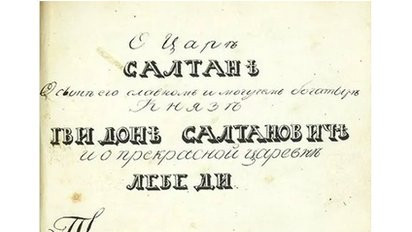 О Царѣ
САЛТАНѢ
О сынѣ его славномъ и могучемъ богатырѣ
Князѣ
ГВИДОНѢ САЛТАНОВИЧѢ
и о прекрасной царевнѣ
ЛЕБЕДИ
Т